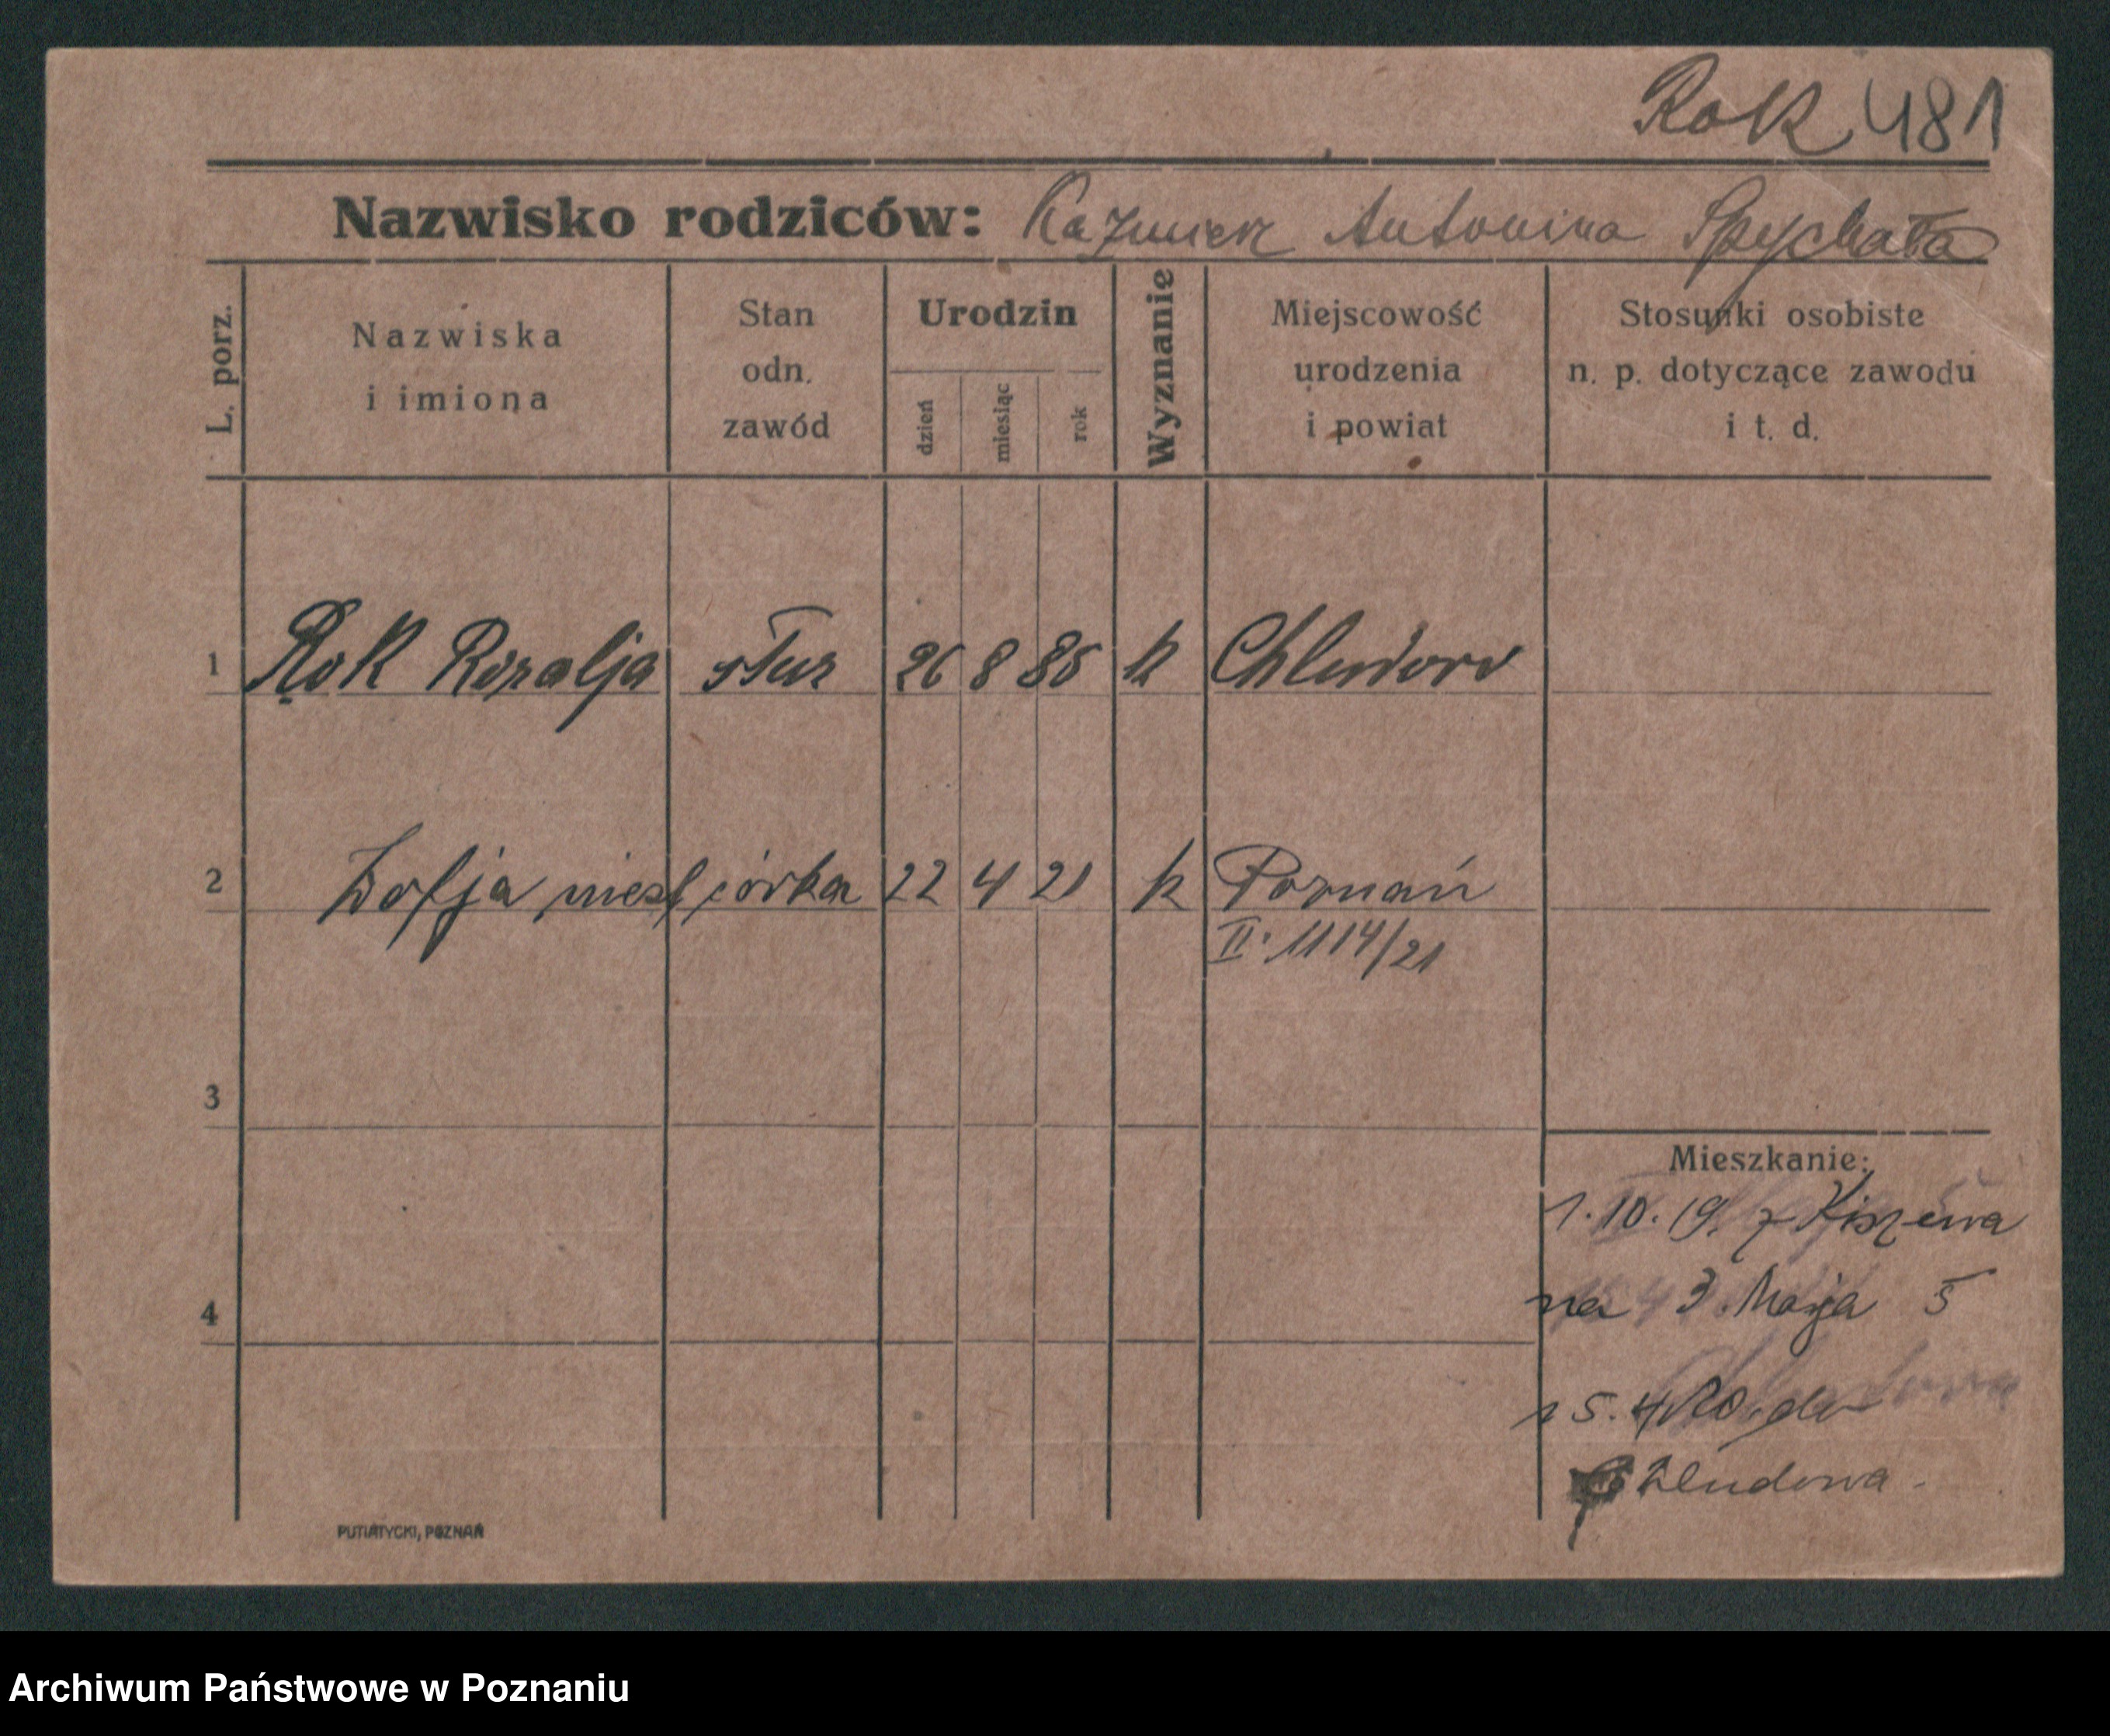 Rok 481
Nazwisko rodziców: Kazmierz Antonina Spychała
L. porz.
Nazwiska
i imiona
Stan
odn.
zawód
Urodzin
dzień
miesiąc
rok
Wyznanie
Miejscowość
urodzenia
i powiat
Stosunki osobiste
n. p. dotyczące zawodu
i t. d.
1 Rok Rozalja służ 26 8 85 k Chludowo
2 Zofja nieśl córka 22 4 21 k Poznań
II. 1114/21
3
4
Mieszkanie:
1. 10. 19. z Kiszewa
na 3. Maja 5
15. 4. 20. do
Chludowa.
PUTIATYCKI, POZNAŃ
Archiwum Państwowe w Poznaniu